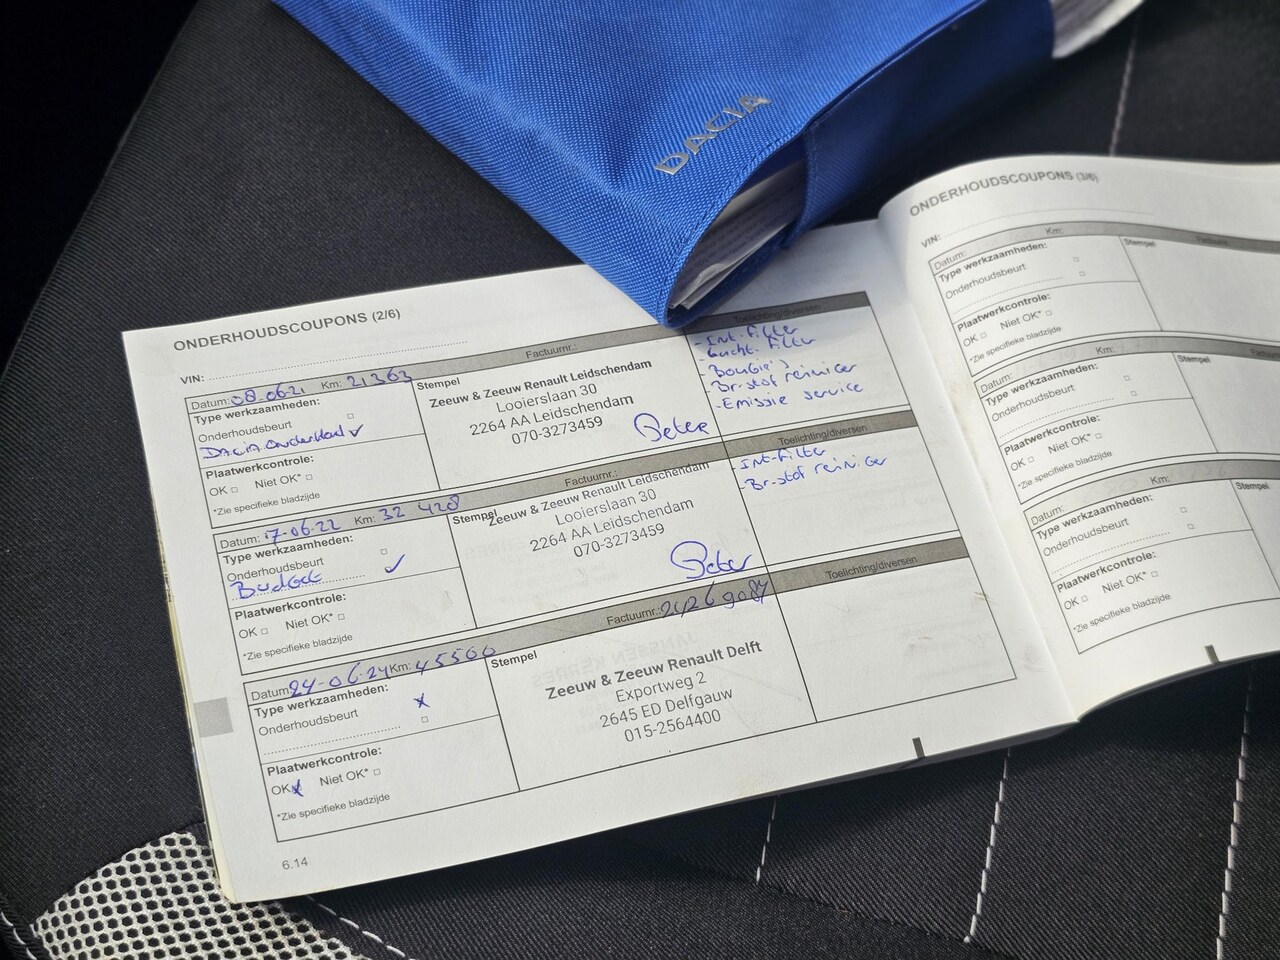 DACIA
ONDERHOUDSCOUPONS (2/6)
VIN:
Datum: 08-06-21 Km: 21363 Factuurnr.: Toelichting/diversen
Type werkzaamheden:
Onderhoudsbeurt
Dacia Onderhoud
Plaatwerkcontrole:
OK Niet OK*
*Zie specifieke bladzijde
Stempel
Zeeuw & Zeeuw Renault Leidschendam
Looierslaan 30
2264 AA Leidschendam
070-3273459
Peter
- Int. filter
- Lucht. filter
- Bougie's
- Br-stof reiniger
- Emissie service
Datum: 17-06-22 Km: 32 428 Factuurnr.: Toelichting/diversen
Type werkzaamheden:
Onderhoudsbeurt
Budget
Plaatwerkcontrole:
OK Niet OK*
*Zie specifieke bladzijde
Stempel
Zeeuw & Zeeuw Renault Leidschendam
Looierslaan 30
2264 AA Leidschendam
070-3273459
Peter
- Int-filter
- Br-stof reiniger
Datum: 24-06-24 Km: 45500 Factuurnr.: Toelichting/diversen
Type werkzaamheden:
Onderhoudsbeurt
Plaatwerkcontrole:
OK Niet OK*
*Zie specifieke bladzijde
Stempel
Zeeuw & Zeeuw Renault Delft
Exportweg 2
2645 ED Delfgauw
015-2564400
6.14
ONDERHOUDSCOUPONS (3/6)
VIN:
Datum: Km: Stempel Factuurnr.
Type werkzaamheden:
Onderhoudsbeurt
Plaatwerkcontrole:
OK Niet OK*
*Zie specifieke bladzijde
Datum: Km: Stempel
Type werkzaamheden:
Onderhoudsbeurt
Plaatwerkcontrole:
OK Niet OK*
*Zie specifieke bladzijde
Datum: Km: Stempel
Type werkzaamheden:
Onderhoudsbeurt
Plaatwerkcontrole:
OK Niet OK*
*Zie specifieke bladzijde